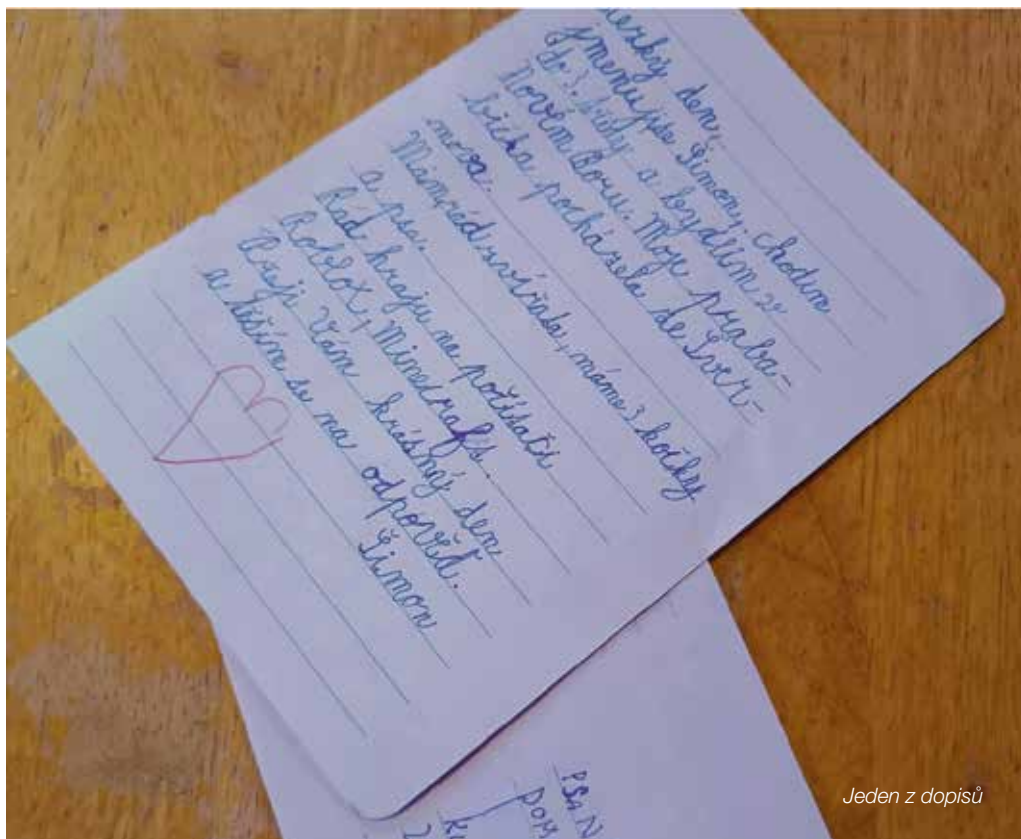 ezký den,
jmenuji se Šimon, chodím
do 3. třídy a bydlím v
Novém Boru. Moje praba-
bička pocházela ze Sver-
mova.
Mám rád zvířata, máme 3 kočky
a psa.
Rád hraju na počítači
Roblox, Minecraft.
Přeji Vám krásný den
a těším se na odpověď.
Šimon
Jeden z dopisů